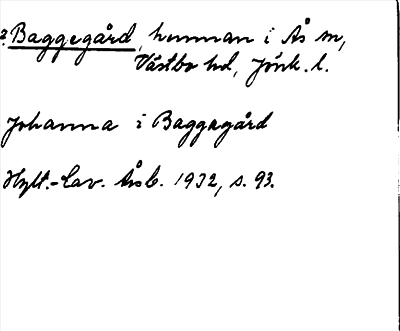 ? Baggegård, hemman i Ås sn,
Västbo hd, Jönk. l.
Johanna i Baggegård
Hylt.-Cav. Årsb. 1932, s. 93.